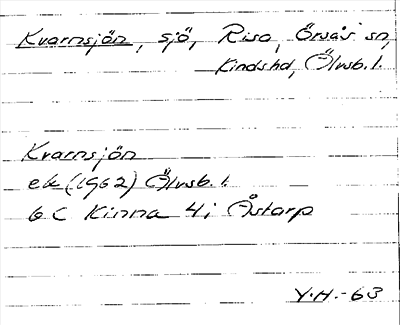 Kvarnsjön, sjö, Risa, Örsås sn,
Kinds hd, Älvsb. l.
Kvarnsjön
ek (1962) Älvsb. l.
6 C Kinna 4 i Åstarp
Y.H.-63